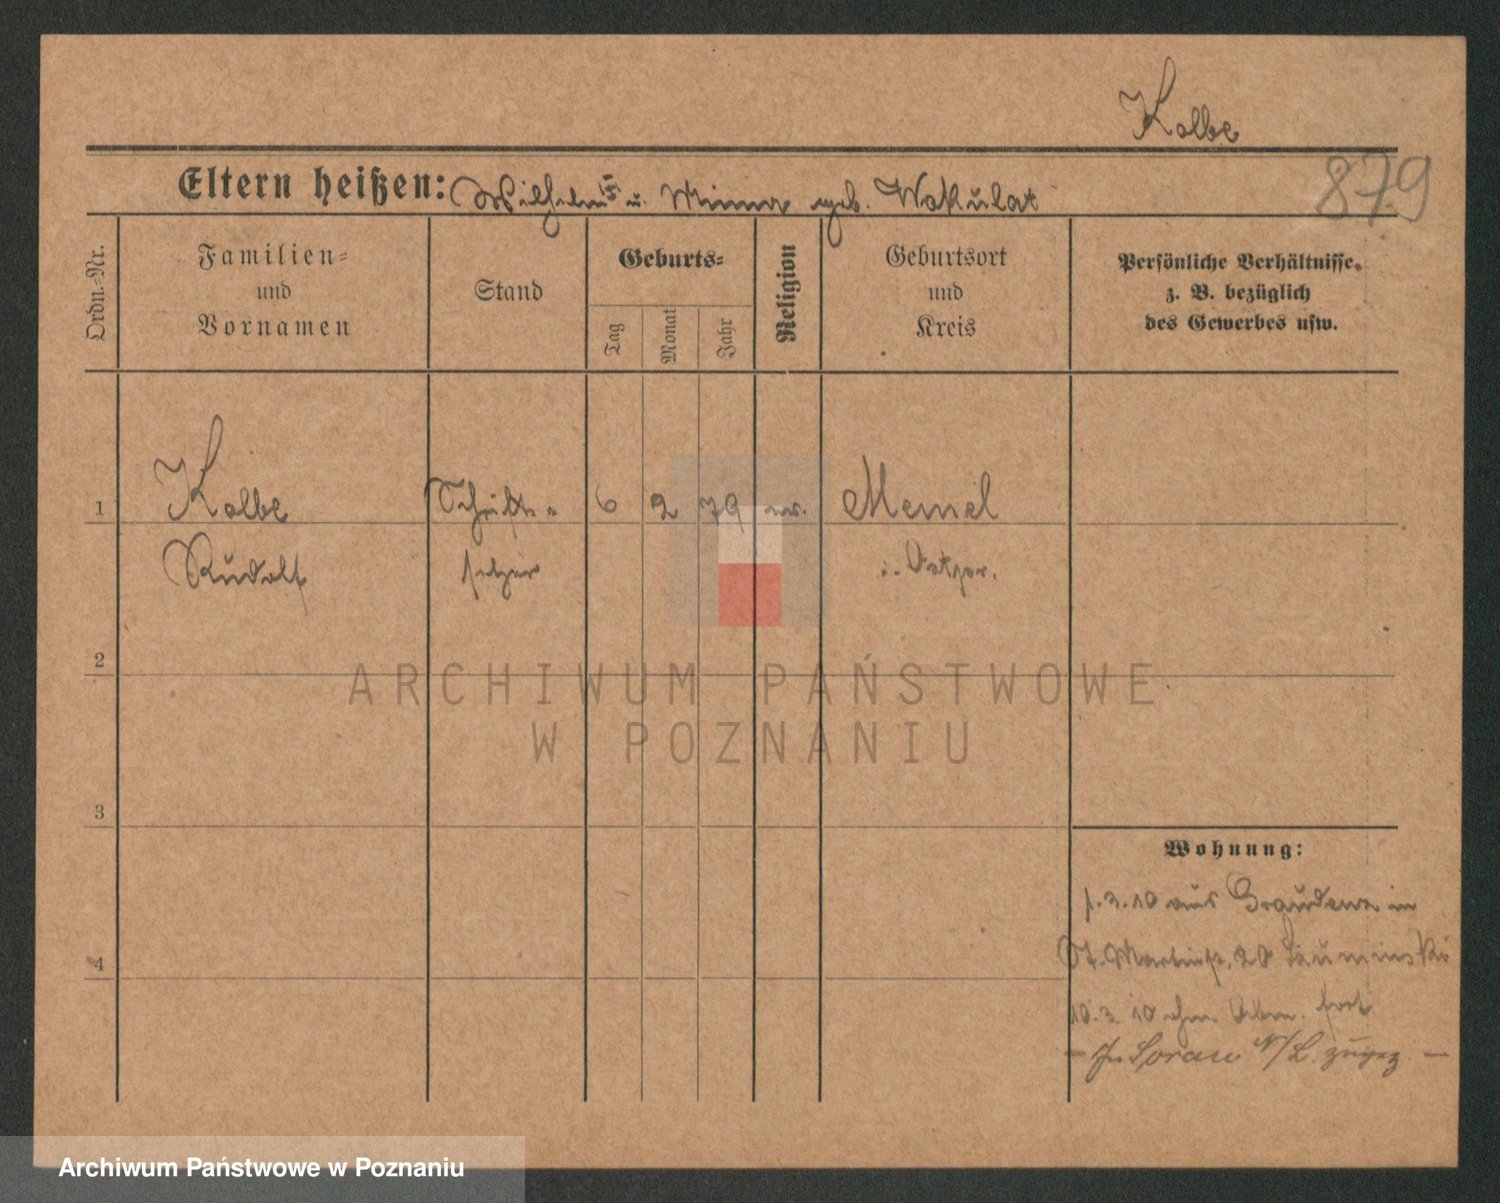 Kolbe
879
Eltern heißen: Wilhelm u. Minna geb. Wakulat
Ordn.-Nr.
Familien-
und
Vornamen
Stand
Geburts-
Tag
Monat
Jahr
Religion
Geburtsort
und
Kreis
Persönliche Verhältnisse
z. B. bezüglich
des Gewerbes usw.
1
Kolbe
Schrift-
6
2
79
ev.
Memel
Rudolf
setzer
i. Ostpr.
2
ARCHIWUM PAŃSTWOWE
W POZNANIU
3
Wohnung:
1.3.10 aus Graudenz in
4
St. Martinstr. 20
10.3.10 ohne Abm. fort
- In Sorau N/L. zugez. -
Archiwum Państwowe w Poznaniu